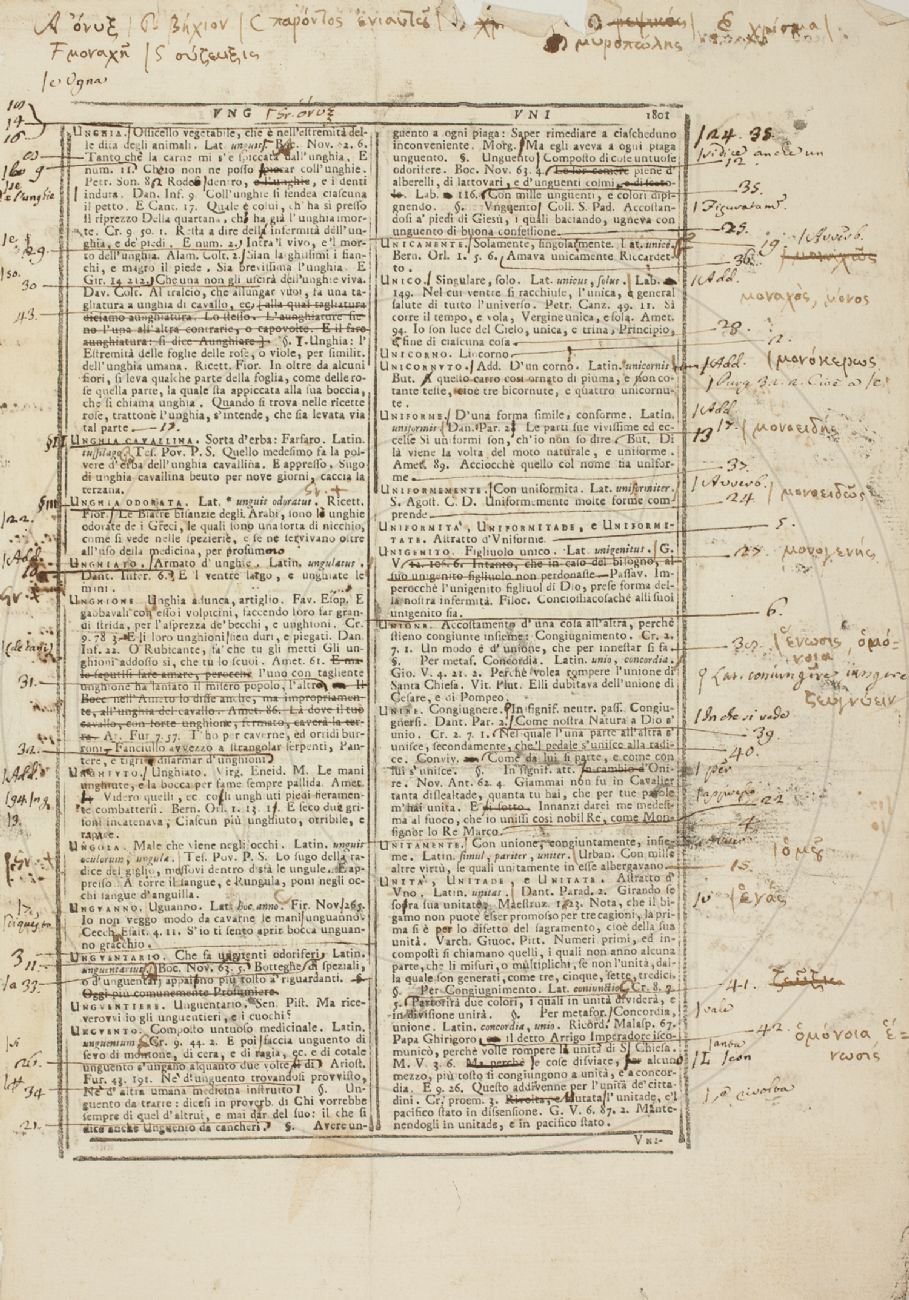 A ὄνυξ | B βήχιον | C παρόντος ἐνιαυτ
μυροπώλης
F μοναχῆ | S σύζευξις
e Ugna
VNG ὄνυξ VNI 1801
UNGHIA. Ossicello vegetabile, che è nell'estremità del-
le dita degli animali. Lat. unguis. Boc. Nov. 82. 6.
Tanto che la carne mi s'è spiccata dall'unghia. E
num. 11. Ch'eio non ne posso spiccar coll'unghie.
Petr. Son. 8 Rodo dentro, e l'unghie, e i denti
indura. Dan. Inf. 9 Coll'unghie si fendea ciascuna
il petto. E Cant. 17. Quale è colui, ch'ha sì presso
il riprezzo Della quartan, ch'ha già l'unghia smor-
te. Cr. 9. 50. 1. Resta a dire della infermità dell'un-
ghia, e de' piedi. E num. 2. Intra'l vivo, e'l mor-
to dell'unghia. Alam. Colt. 2. Sian la ghissimi i fian-
chi, e magro il piede. Sia brevissima l'unghia. E
Gir. 14 212. Che una non gli uscirà dell'unghie viva.
Dav. Colt. Al tralcio, che allungar vuoi, fa una ta-
gliatura a unghia di cavallo, ec. (alla qual tagliatura
diciamo aunghiatura. Lo stesso. L'aunghiature sie-
no l'una all'altra contrarie, o capovolte. E il fare
aunghiatura: si dice Aunghiare.) §. I. Unghia: l'
Estremità delle foglie delle rose, o viole, per similit.
dell'unghia umana. Ricett. Fior. In oltre da alcuni
fiori, si leva qualche parte della foglia, come delle ro-
se quella parte, la quale sta appiccata alla sua boccia,
che si chiama unghia. Quando si trova nelle ricette
rose, trattone l'unghia, s'intende, che sia levata via
tal parte
UNGHIA CAVALLINA. Sorta d'erba: Farfaro. Latin.
tussilago. Tes. Pov. P. S. Quello medesimo fa la pol-
vere d'erba dell'unghia cavallina. E appresso. Sugo
di unghia cavallina beuto per nove giorni, caccia la
terzana.
UNGHIA ODORATA. Lat. unguis odoratus. Ricett.
Fior. Le Blatte bisanzie degli Arabi, sono le unghie
odorate de i Greci, le quali sono una sorta di nicchio,
come si vede nelle spezierie, e se ne servivano oltre
all'uso della medicina, per profumo
UNGHIATO. Armato d'unghie. Latin. ungulatus.
Dant. Infer. 6. E'l ventre largo, e unghiate le
mini.
UNGHIONE. Unghia adunca, artiglio. Fav. Esop. E
gaobavali con essoi volpicini, faccendo loro far gran-
di strida, per l'asprezza de' becchi, e unghioni. Cr.
9. 78 3. E li loro unghioni sien duri, e piegati. Dan.
Inf. 22. O Rubicante, fa che tu gli metti Gli un-
ghioni addosso sì, che tu lo scuoi. Amet. 61. E ma-
le saputisi fare amare, perocchè l'uno con tagliente
unghione ha laniato il misero popolo, l'altro, Il
Bocc nell'Ameto lo disse anche, ma impropriamen-
te, all'unghia del cavallo. Amet. 86. Là dove il tuo
cavallo, con forte unghione, fermato, caverà la ter-
ra. Ar. Fur 7.57. T'ho per caverne, ed orridi bur-
roni, Fanciullo avvezzo a strangolar serpenti, Pan-
tere, e tigri disarmar d'unghioni
UNGHIUTO. Unghiato. Virg. Eneid. M. Le mani
unghiute, e la bocca per fame sempre pallida. Amet.
Videro quelli, ec. cogli unghiuti piedi fieramen-
te combattersi. Bern. Orl. 1. 4. 15. E seco due gri-
foni incatenava, Ciascun più unghiuto, orribile, e
rapace.
UNGOLA. Male che viene negli occhi. Latin. unguis
oculorum, ungula. Tes. Pov. P. S. Lo sugo della ra-
dice del giglio, messovi dentro disfà le ungule. E ap-
presso. A torre il sangue, e l'ungula, poni negli oc-
chi sangue d'anguilla.
UNGUANNO. Uguanno. Lat. hoc anno. Fir. Nov. 265.
Io non veggo modo da cavarne le mani unguanno.
Cecch. Esalt. 4. 11. S'io ti sento aprir bocca unguan-
no gracchio.
UNGUENTARIO. Che fa unguenti odoriferi. Latin.
unguentarius. Boc. Nov. 63. 5. Botteghe di speziali,
o d'unguentari appaiono più tosto a' riguardanti. §.
Oggi più comunemente Profumiere.
UNGUENTIERE. Unguentario. Sen. Pist. Ma rice-
verovvi io gli unguentieri, e i cuochi?
UNGUENTO. Composto untuoso medicinale. Latin.
unguentum. Cr. 9. 44. 2. E poi faccia unguento di
sevo di montone, di cera, e di ragia, ec. e di cotale
unguento s'ungano alquanto due volte il dì. Ariost.
Fur. 43. 191. Nè d'unguento trovandosi provvisto,
Nè d'altra umana medicina instruito §. Un-
guento da trarre: dicesi in proverb. di Chi vorrebbe
sempre di quel d'altrui, e mai dar del suo: il che si
dice anche Unguento da cancheri. §. Avere un-
guento a ogni piaga: Saper rimediare a ciascheduno
inconveniente. Morg. Ma egli aveva a ogni piaga
unguento. §. Unguento: Composto di cose untuose
odorifere. Boc. Nov. 63. 4. Le lor camere piene d'
alberelli, di lattovari, e d'unguenti colmi, e di scato-
le. Lab. 116. Con mille unguenti, e colori dipi-
gnendo. §. Unguento: Coll. S. Pad. Accostan-
dosi a' piedi di Giesù, i quali baciando, ugneva con
unguento di buona confessione.
UNICAMENTE. Solamente, singolarmente. Lat. unice.
Bern. Orl. 1. 5. 6. Amava unicamente Riccardet-
to.
UNICO. Singulare, solo. Lat. unicus, solus. Lab.
149. Nel cui ventre si racchiuse, l'unica, e general
salute di tutto l'universo. Petr. Canz. 49. 11. Si
corre il tempo, e vola, Vergine unica, e sola. Amet.
94. Io son luce del Cielo, unica, e trina, Principio,
e fine di ciascuna cosa.
UNICORNO. Liocorno
UNICORNUTO. Add. D'un corno. Latin. unicornis
But. A questo carro così ornato di piuma, e non co-
tante teste, cioè tre bicornute, e quattro unicornu-
te.
UNIFORME. D'una forma simile, conforme. Latin.
uniformis. Dan. Par. 2. Le parti sue vivissime ed ec-
celse Sì uniformi son, ch'io non so dire. But. Di
là viene la volta del moto naturale, e uniforme.
Amet. 89. Acciocchè quello col nome sia unifor-
me.
UNIFORMEMENTE. Con uniformità. Lat. uniformiter.
S. Agost. C. D. Uniformemente molte forme com-
prende.
UNIFORMITA', UNIFORMITADE, e UNIFORMI-
TATE. Astratto d'Uniforme.
UNIGENITO. Figliuolo unico. Lat. unigenitus. G.
V. 12. 108. 6. Intanto, che in caso del bisogno, al
suo unigenito figliuolo non perdonasse. Passav. Im-
perocchè l'unigenito figliuol di Dio, prese forma del-
la nostra infermità. Filoc. Conciossiacosachè alli suoi
unigenito sia.
UNIONE. Accostamento d'una cosa all'altra, perchè
stieno congiunte insieme: Congiugnimento. Cr. 2.
7. 1. Un modo è d'unione, che per innestar si fa.
§. Per metaf. Concordia. Latin. unio, concordia.
Gio. V. 4. 21. 2. Perchè volea rompere l'unione di
Santa Chiesa. Vit. Plut. Elli dubitava dell'unione di
Cesare, e di Pompeo.
UNIRE. Congiugnere. In signif. neutr. pass. Congiu-
gnersi. Dant. Par. 2. Come nostra Natura a Dio s'
unio. Cr. 2. 7. 1. Nel quale l'una parte all'altra s'
unisce, secondamente, che'l pedale s'unisce alla radi-
ce. Conviv. Come da lui si parte, e come con
lui s'unisce. §. In signif. att. Io cambio d'Oni-
re. Nov. Ant. 62. 4. Giammai non fu in Cavalier
tanta dislealtade, quanta tu hai, che per tue parole
m'hai unita. E di sotto. Innanzi darei me medesi-
ma al fuoco, che io unissi così nobil Re, come Mon-
signor lo Re Marco.
UNITAMENTE. Con unione, congiuntamente, insie-
me. Latin. simul, pariter, uniter. Urban. Con mille
altre virtù, le quali unitamente in esse albergavano
UNITA', UNITADE, e UNITATE. Astratto d'
Vno. Latin. unitas. Dant. Parad. 2. Girando se
sovra sua unitate. Maestruz. 1. 23. Nota, che il bi-
gamo non puote esser promosso per tre cagioni, la pri-
ma si è per lo difetto del sagramento, cioè della sua
unità. Varch. Giuoc. Pitt. Numeri primi, ed in-
composti si chiamano quelli, i quali non anno alcuna
parte, che li misuri, o multiplichi, se non l'unità, dal-
la quale son generati, come tre, cinque, sette, tredici.
§. Per Congiugnimento. Lat. coniunctio. Cr. 8. 9.
5. Partorirà due colori, i quali in unità dividerà, e
in divisione unirà. §. Per metafor. Concordia,
unione. Latin. concordia, unio. Ricord. Malasp. 67.
Papa Ghirigoro il detto Arrigo Imperadore isco-
municò, perchè volle rompere la unità di S. Chiesa.
M. V. 3. 6. Ma perchè le cose disviate, per alcun
mezzo, più tosto si congiungono a unità, e a concor-
dia. E 9. 26. Questo addivenne per l'unità de' citta-
dini. Cr. proem. 3. Rivolta, e Mutata l'unitade, e'l
pacifico stato in dissensione. G. V. 6. 87. 2. Mante-
nendogli in unitade, e in pacifico stato.
VNI-
24. 35.
35.
Figuratam
25.
Avverb.
36.
Add.
μοναχός, μόνος
28.
Add. | μονόκερως
Add.
μονοειδής
13
37.
Avverb.
24 | μονοειδῶς
5.
23. μονογενής
6.
30. ἕνωσις, ὁμό-
νοια
Lat. coniungere iungere
ζευγνύειν
39.
40.
per
22
4.
ὁμοῦ
15.
ἑνάς
41.
vale
42. ὁμόνοια, ἕ-
νωσις
30
43.
31.
32.
Add.
33.
26.
34
21.